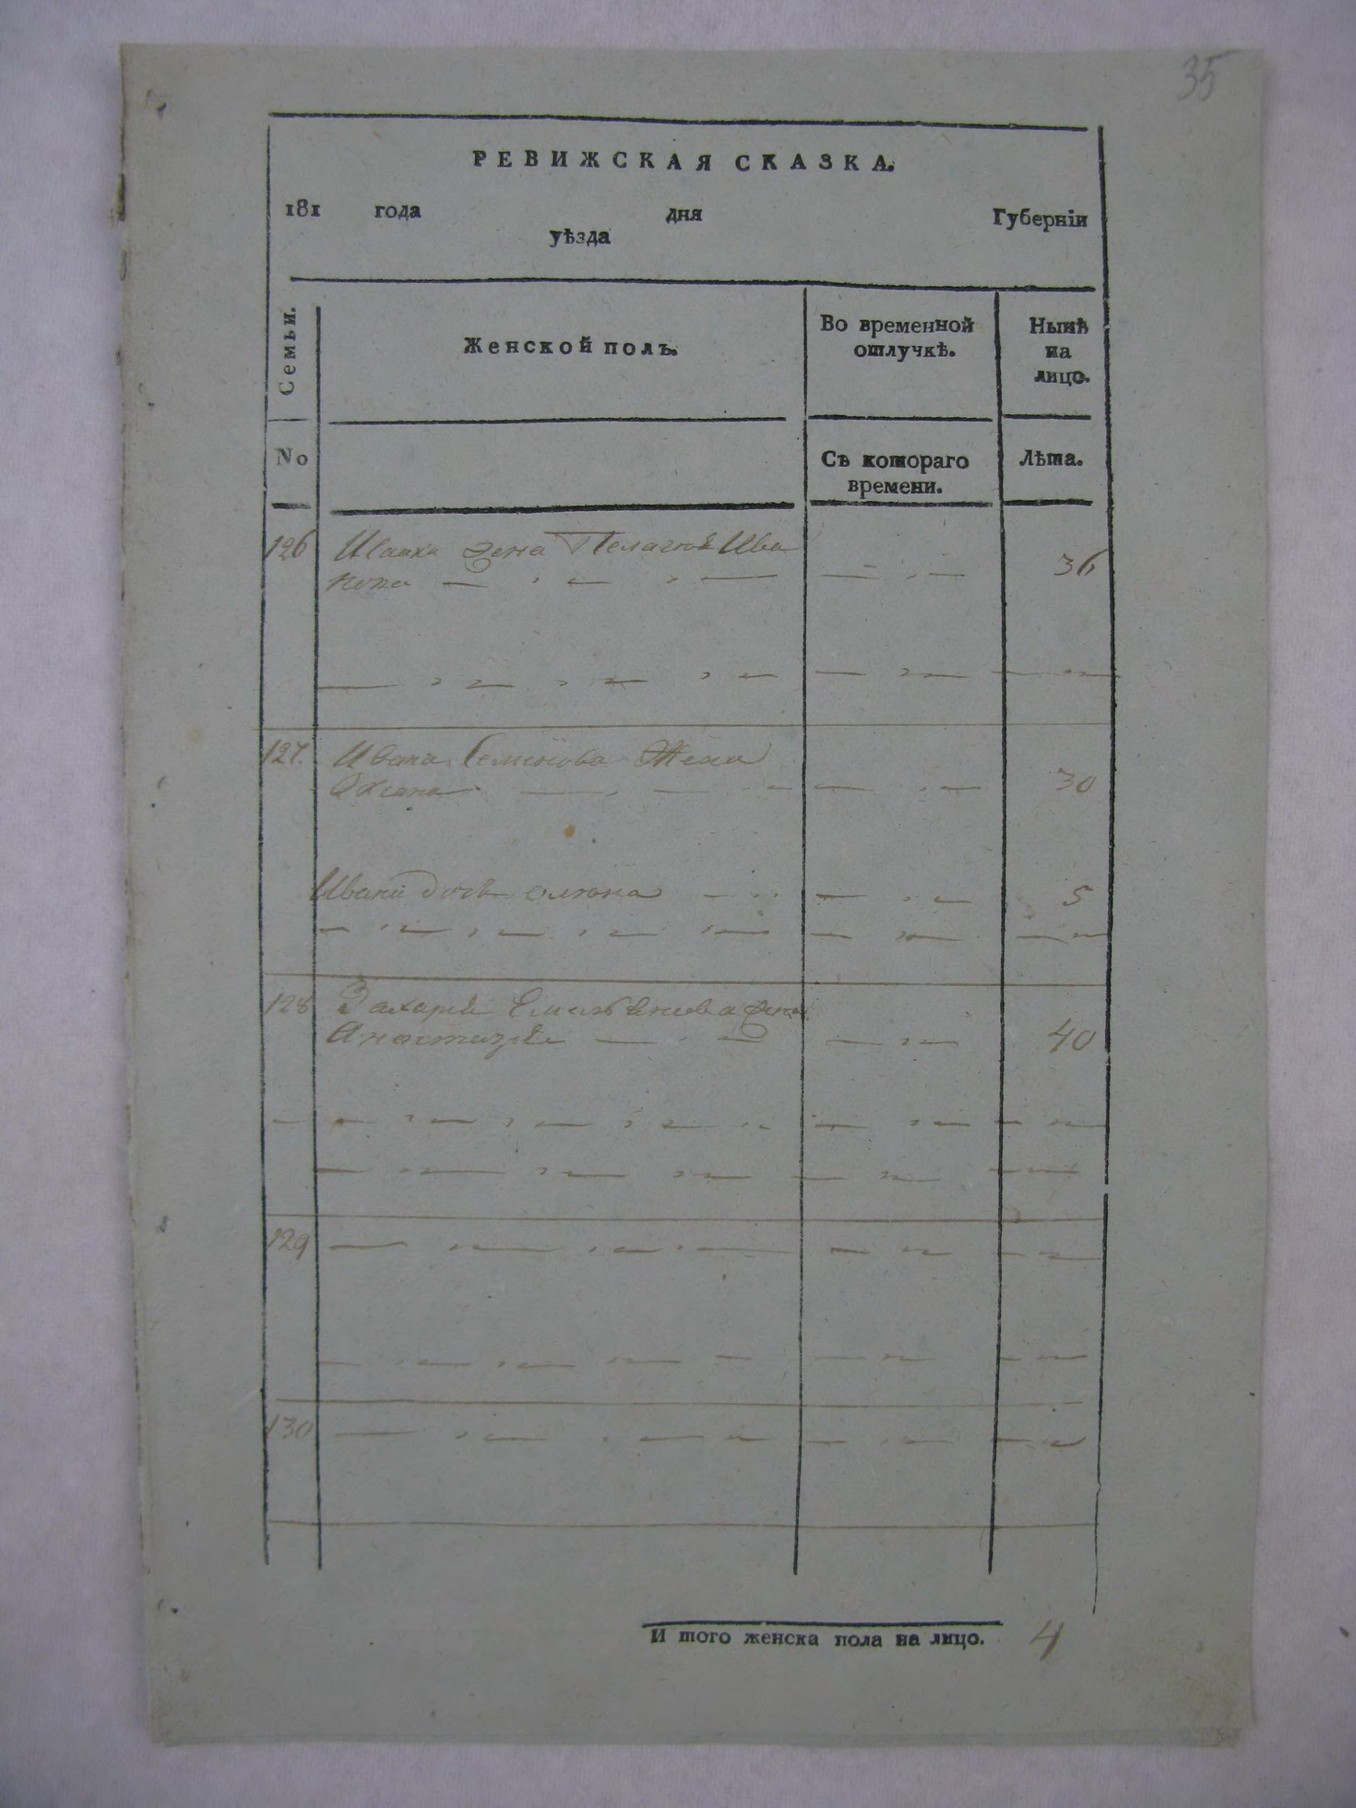 35
РЕВИЖСКАЯ СКАЗКА.
181 года дня Губерніи
уѣзда
Семьи. Женской полъ. Во временной отлучкѣ. Нынѣ на лицо.
No Съ котораго времени. Лѣта.
126 жена Пелагия Ива
нова 36
127. Ивана Семенова Жена
30
Ивана дочь 5
128 Захария Емельянова жена
Анастазия 40
129
130
И того женска пола на лицо. 4